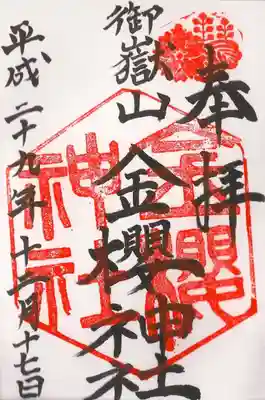 奉拝
御嶽山 金櫻神社
平成二十九年十二月十七日
金櫻
神社